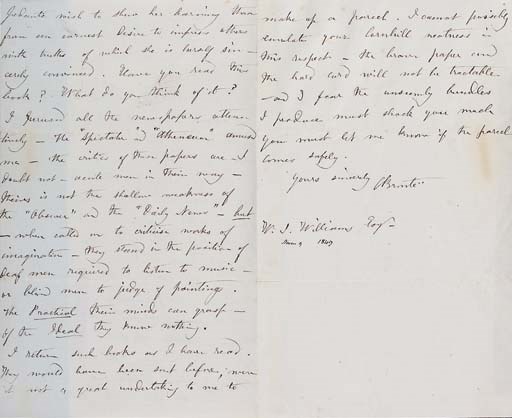 pedantic wish to shew her learning than
from an earnest desire to impress others
with truths of which she is herself sin-
cerely convinced. Have you read this
book? What do you think of it?
I perused all the newspapers atten-
tively - the "Spectator" and "Athenæum" amused
me - the critics of these papers are - I
doubt not - acute men in their way -
theirs is not the shallow weakness of
the "Observer" and the "Daily News" - but
- when called on to criticise works of
imagination - they stand in the position of
deaf men required to listen to music -
or blind men to judge of painting.
The Practical their minds can grasp -
of the Ideal they know nothing.
I return such books as I have read.
They would have been sent before, were
it not a great undertaking to me to
make up a parcel. I cannot possibly
emulate your Cornhill neatness in
this respect - the brown paper and
the hard cord will not be tractable
- and I fear the unseemly bundles
I produce must shock you much
you must let me know if the parcel
comes safely.
Yours sincerely CBrontë
W. S. Williams Esqr
1849